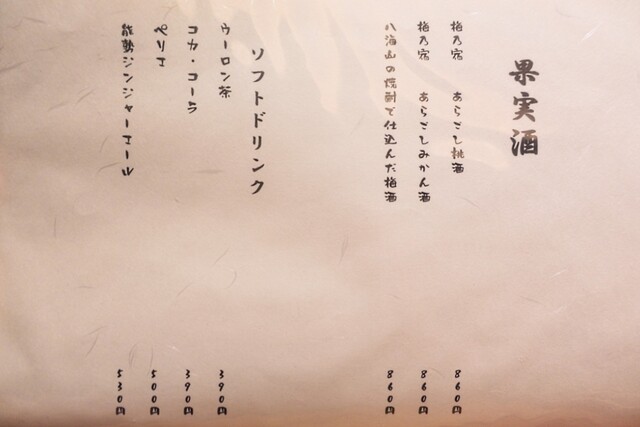 果実酒
梅乃宿 あらごし桃酒 860円
梅乃宿 あらごしみかん酒 860円
八海山の焼酎で仕込んだ梅酒 860円
ソフトドリンク
ウーロン茶 390円
コカ・コーラ 390円
ペリエ 500円
能勢ジンジャーエール 530円